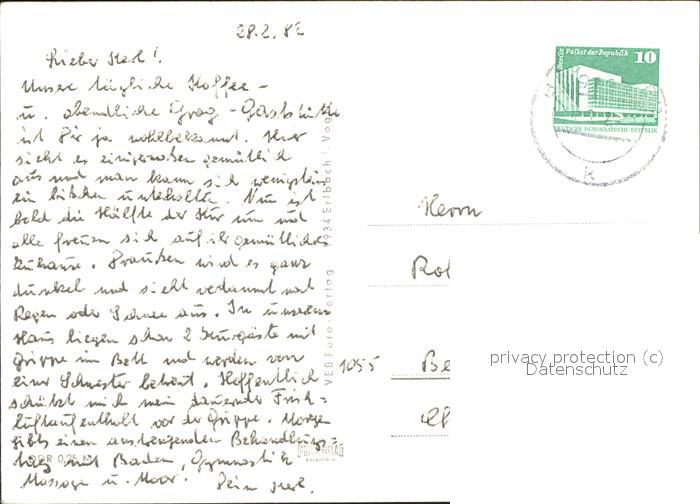 28.2.82
Lieber Karl!
Unsere tägliche Kaffee-
u. abendliche Grog-Gaststätte
ist Dir ja wohlbekannt. Hier
sieht es einigermaßen gemütlich
aus und man kann sich wenigstens
ein bißchen unterhalten. Nun ist
bald die Hälfte der Kur um und
alle freuen sich auf ihr gemütliches
Zuhause. Draußen wird es ganz
dunkel und sieht verdammt nach
Regen oder Schnee aus. In unserem
Haus liegen schon 2 Kurgäste mit
Grippe im Bett und werden von
einer Schwester betreut. Hoffentlich
schützt mich mein dauernder Frisch-
luftaufenthalt vor der Grippe. Morgen
gibts einen anstrengenden Behandlungs-
tag mit Baden, Gymnastik
Massage u. Moor. Dein
DDR 0,25 M
VEB Foto-Verlag 9934 Erlbach i. Vogtl.
Berlin Palast der Republik 10
DEUTSCHE DEMOKRATISCHE REPUBLIK
k
Herrn
Rol
1055 Be
privacy protection (c)
Datenschutz